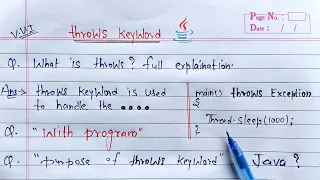 V.V.I
throws keyword
Page No. :
Date : / /
Q. What is throws? full explaination.
Ans→ throws keyword is used
to handle the ....
main() throws Exception
{
Thread.sleep(1000);
}
Q. "With program"
Q. "purpose of throws keyword" Java?